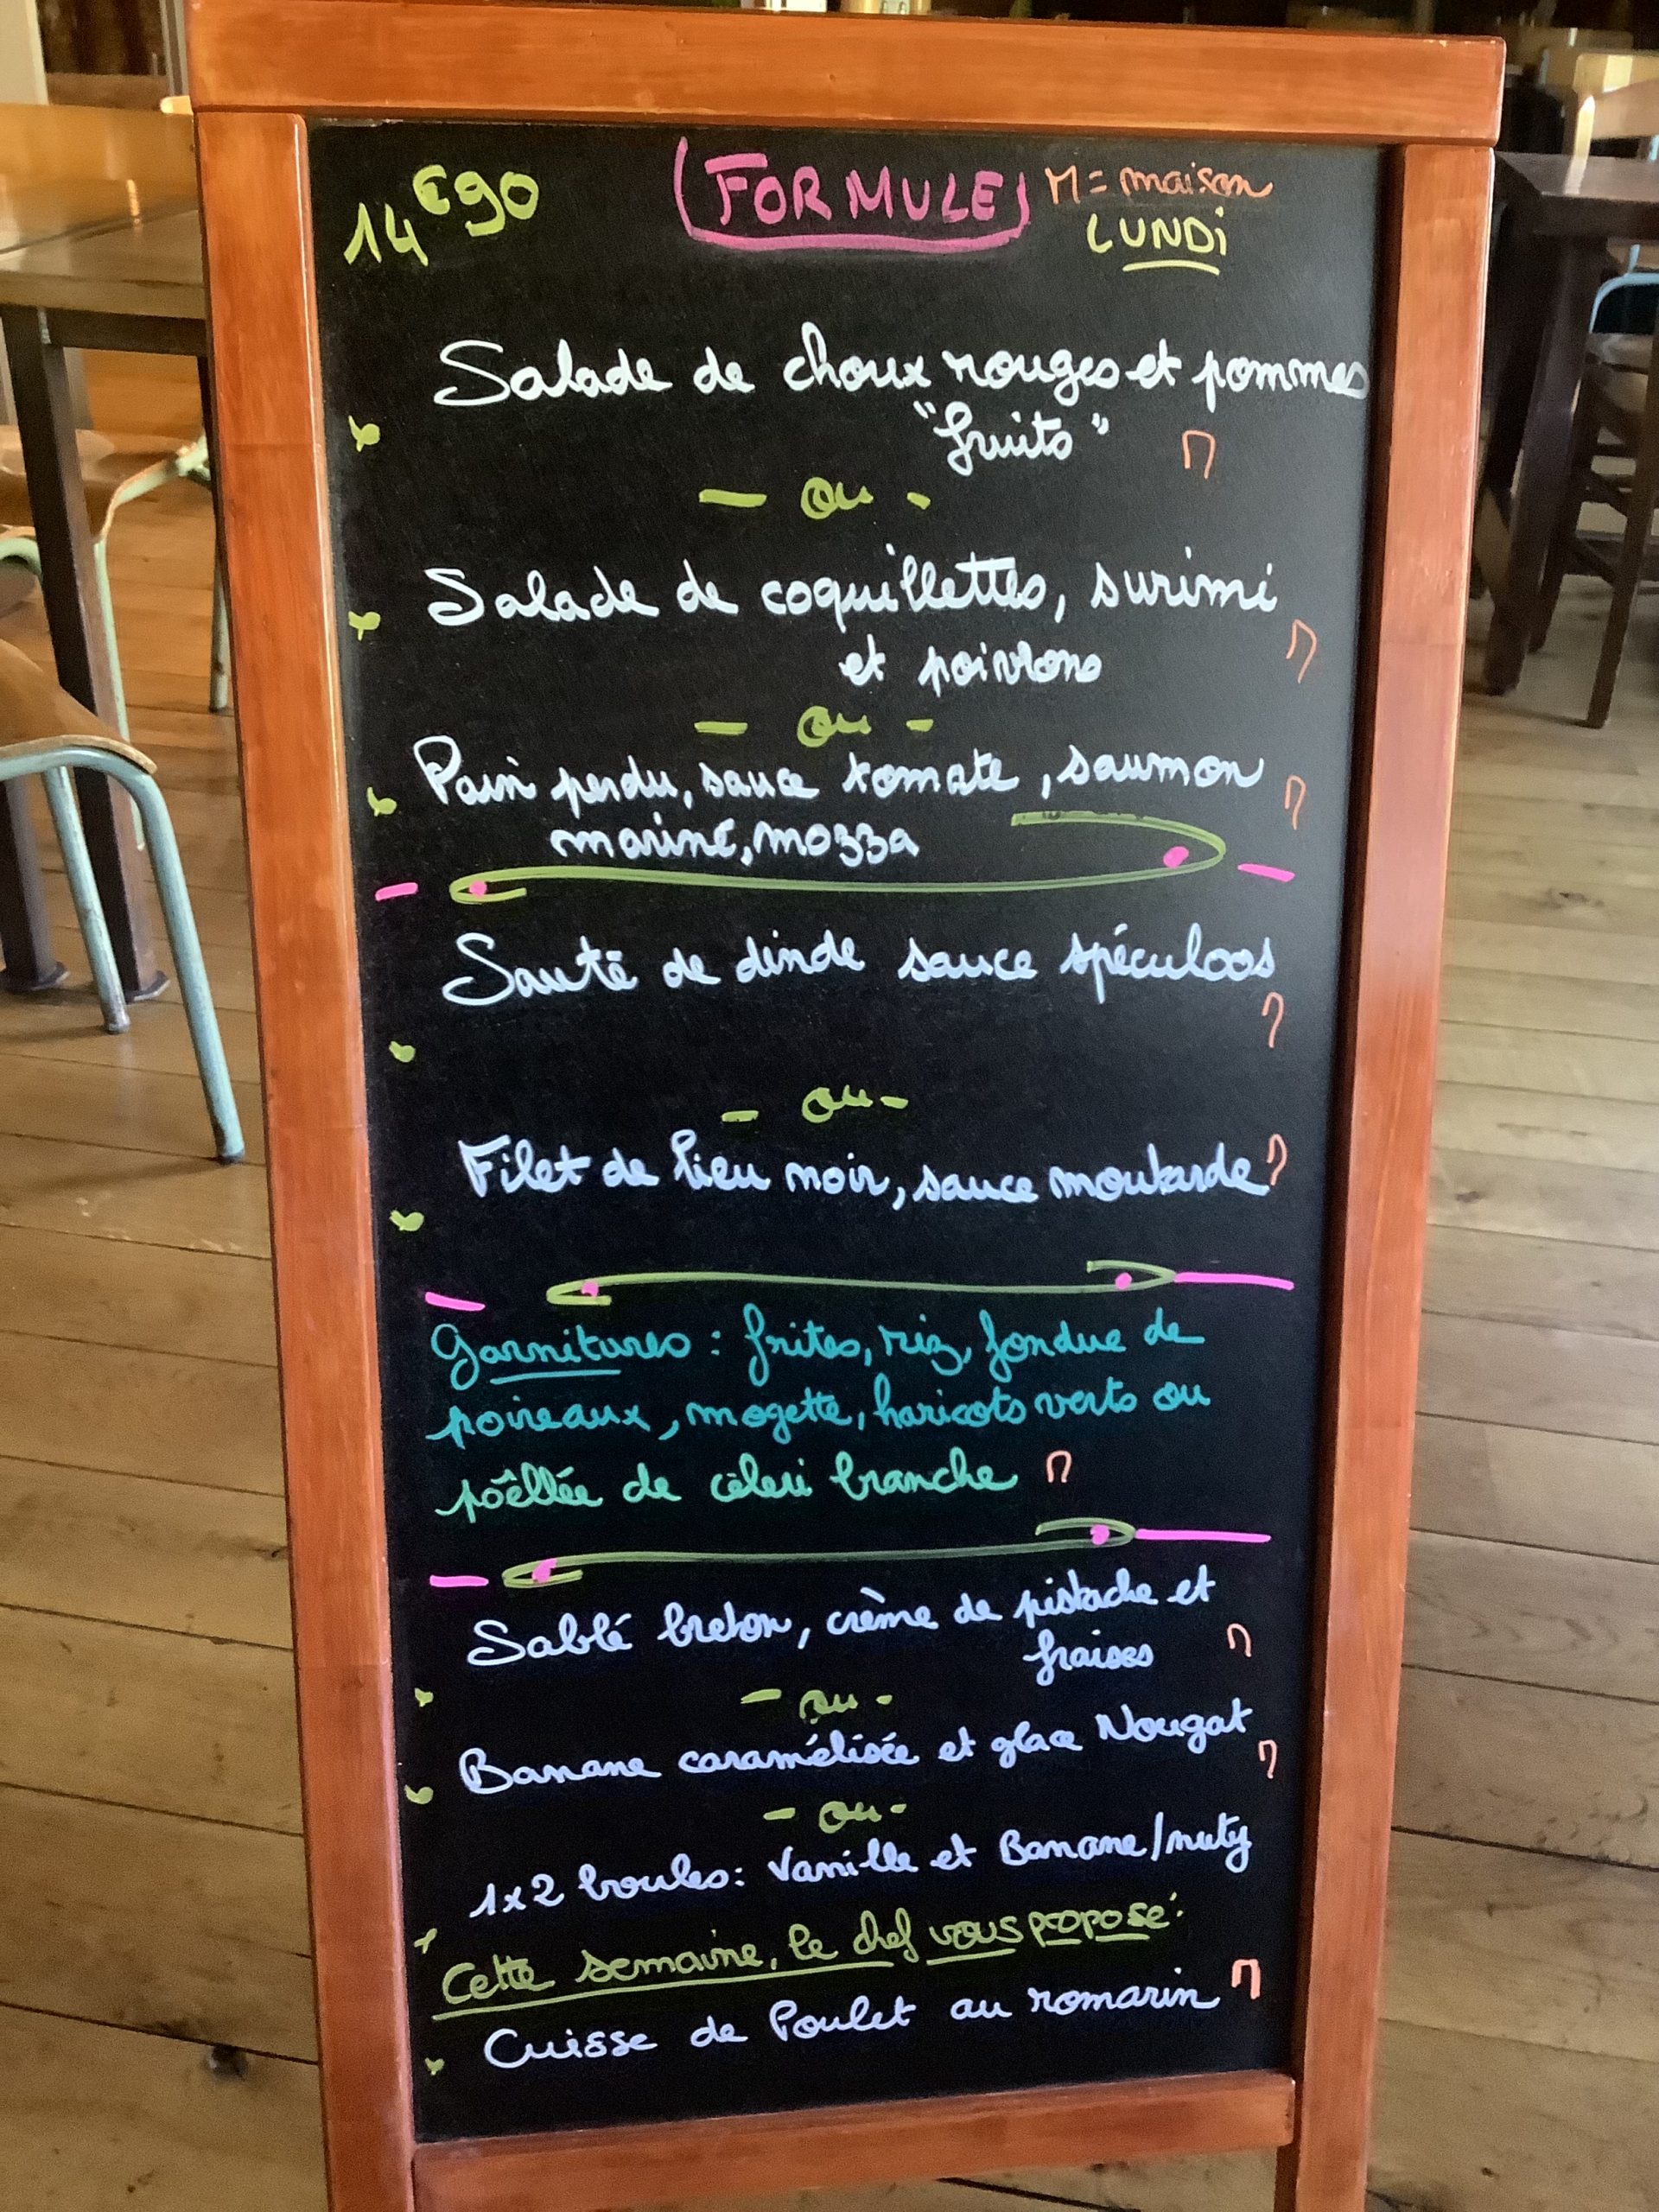 14€90 FORMULE M = maison
LUNDi
Salade de choux rouges et pommes
"fruits" M
- ou -
Salade de coquillettes, surimi
et poivrons M
- ou -
Pain perdu, sauce tomate, saumon M
mariné, mozza
Sauté de dinde sauce spéculoos
M
- ou -
Filet de lieu noir, sauce moutarde M
Garnitures : frites, riz, fondue de
poireaux, mogette, haricots verts ou
poêllée de céleri branche M
Sablé breton, crème de pistache et
fraises M
- ou -
Banane caramélisée et glace Nougat M
- ou -
1x2 boules: Vanille et Banane/nuty
Cette semaine, le chef vous propose:
Cuisse de Poulet au romarin M